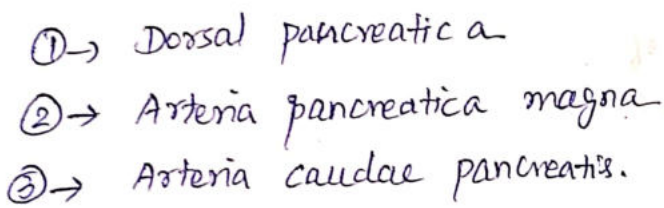 ①→ Dorsal pancreatic a
②→ Arteria pancreatica magna
③→ Arteria caudae pancreatis.